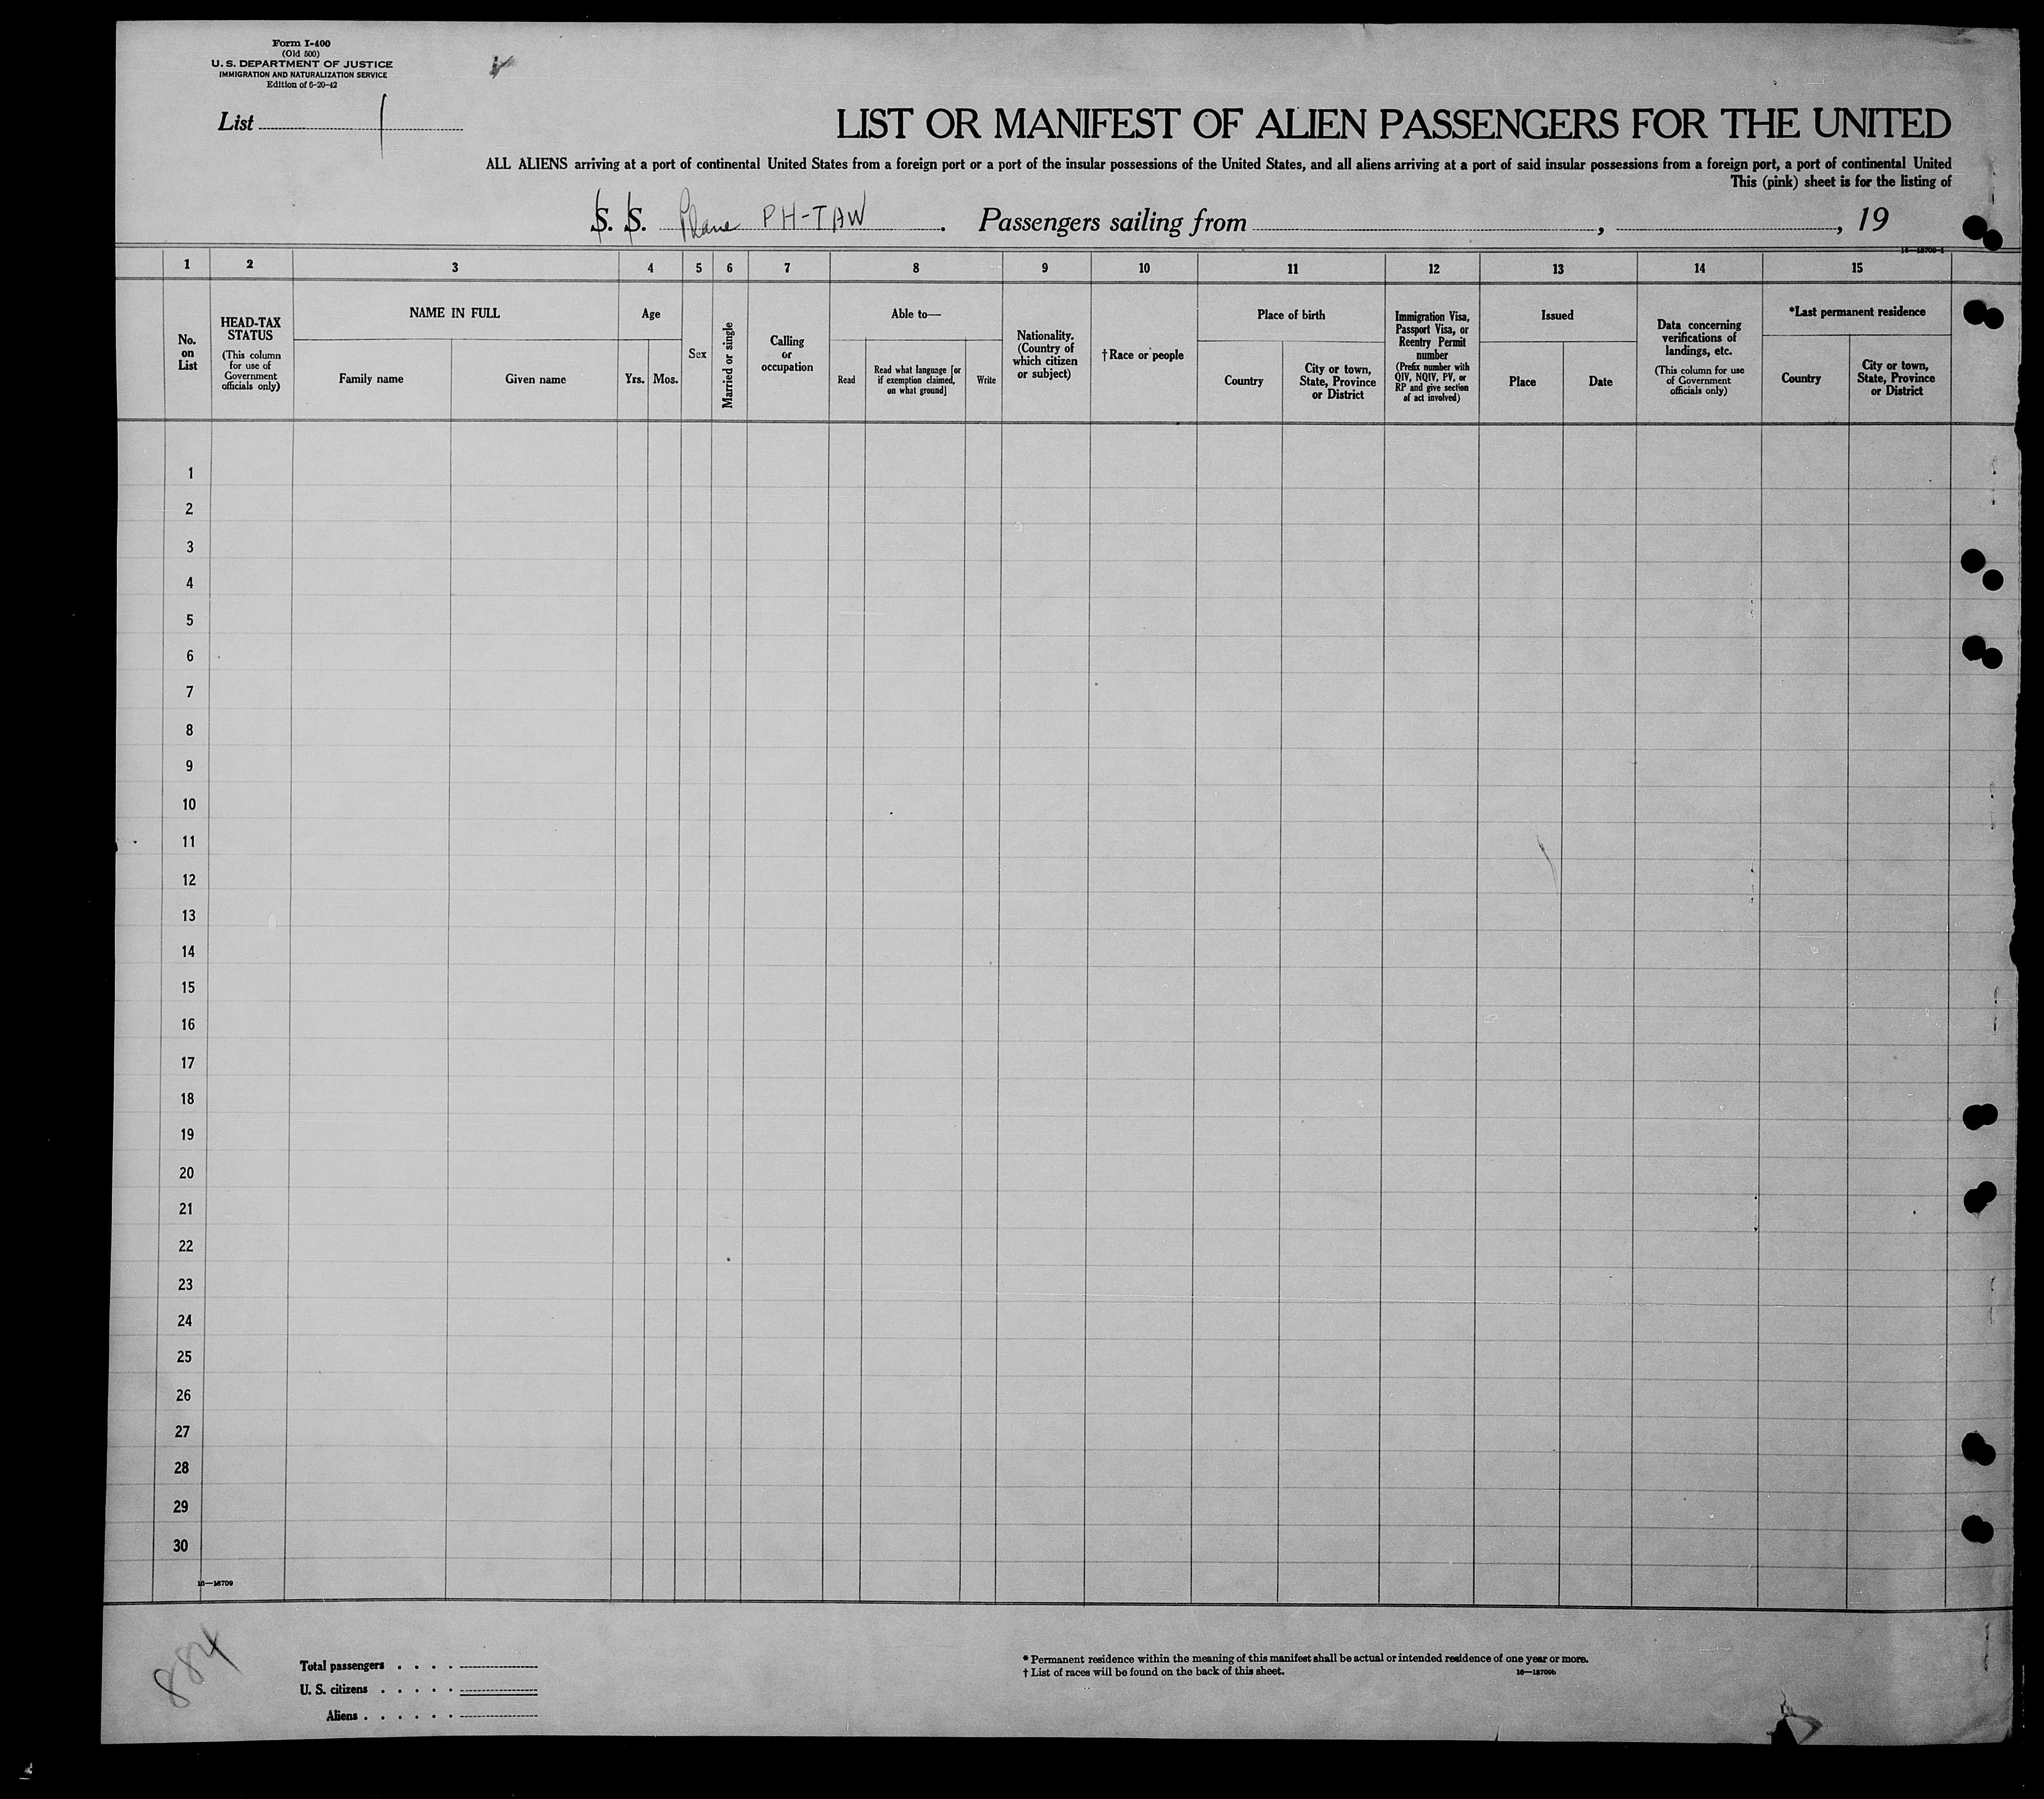 Form I-400
(Old 500)
U. S. DEPARTMENT OF JUSTICE
IMMIGRATION AND NATURALIZATION SERVICE
Edition of 6-20-42
List 1
LIST OR MANIFEST OF ALIEN PASSENGERS FOR THE UNITED
ALL ALIENS arriving at a port of continental United States from a foreign port or a port of the insular possessions of the United States, and all aliens arriving at a port of said insular possessions from a foreign port, a port of continental United
This (pink) sheet is for the listing of
S. S. Plane PH-TAW. Passengers sailing from , , 19
16—18709-1
1 2 3 4 5 6 7 8 9 10 11 12 13 14 15
No.
on
List
HEAD-TAX
STATUS
(This column
for use of
Government
officials only)
NAME IN FULL
Family name
Given name
Age
Yrs. Mos.
Sex
Married or single
Calling
or
occupation
Able to—
Read
Read what language [or
if exemption claimed,
on what ground]
Write
Nationality.
(Country of
which citizen
or subject)
†Race or people
Place of birth
Country
City or town,
State, Province
or District
Immigration Visa,
Passport Visa, or
Reentry Permit
number
(Prefix number with
QIV, NQIV, PV, or
RP and give section
of act involved)
Issued
Place
Date
Data concerning
verifications of
landings, etc.
(This column for use
of Government
officials only)
*Last permanent residence
Country
City or town,
State, Province
or District
1
2
3
4
5
6
7
8
9
10
11
12
13
14
15
16
17
18
19
20
21
22
23
24
25
26
27
28
29
30
16—18709
884
Total passengers . . . .
U. S. citizens . . . . .
Aliens . . . . . .
* Permanent residence within the meaning of this manifest shall be actual or intended residence of one year or more.
† List of races will be found on the back of this sheet.
16—18709b